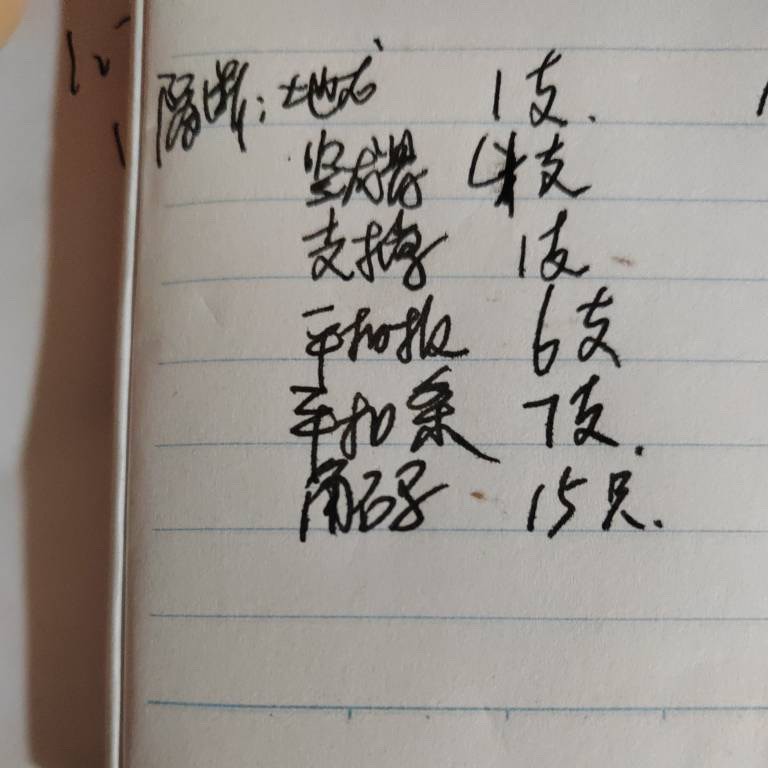 隔断:地龙 1支.
竖龙骨 4支
支撑 1支
平扣板 6支
平扣条 7支.
角码 15只.